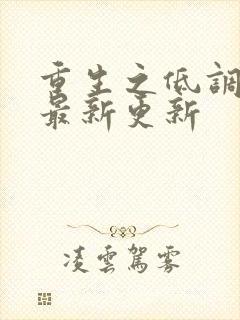 重生之低調
最新更新
凌雲駕霧